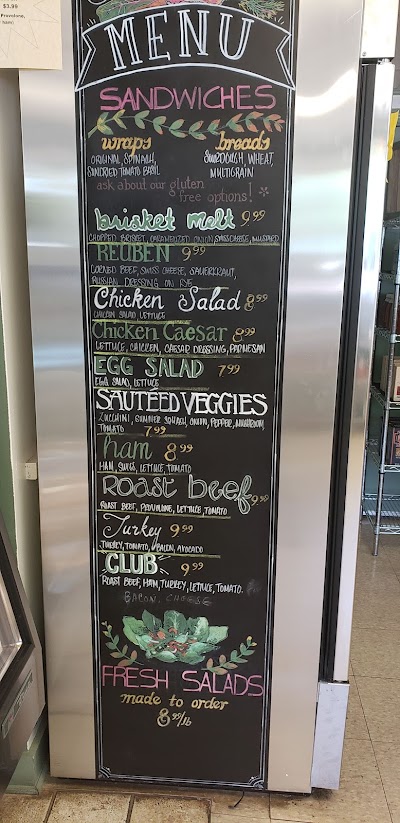 $3.99
Provolone,
ham)
MENU
SANDWICHES
wraps
breads
ORIGINAL, SPINACH,
SUNDRIED TOMATO BASIL
SOURDOUGH, WHEAT,
MULTIGRAIN
ask about our gluten
free options! *
brisket melt 9.99
CHOPPED BRISKET, CARAMELIZED ONION, SWISS CHEESE, MUSTARD
REUBEN 9.99
CORNED BEEF, SWISS CHEESE, SAUERKRAUT,
RUSSIAN DRESSING ON RYE
Chicken Salad 8.99
CHICKEN SALAD, LETTUCE
Chicken Caesar 8.99
LETTUCE, CHICKEN, CAESAR DRESSING, PARMESAN
EGG SALAD 7.99
EGG SALAD, LETTUCE
SAUTÉED VEGGIES
ZUCCHINI, SUMMER SQUASH, ONION, PEPPER, MUSHROOM,
TOMATO 7.99
ham 8.99
HAM, SWISS, LETTUCE, TOMATO
Roast beef 9.99
ROAST BEEF, PROVOLONE, LETTUCE, TOMATO
Turkey 9.99
TURKEY, TOMATO, BACON, AVOCADO
CLUB 9.99
ROAST BEEF, HAM, TURKEY, LETTUCE, TOMATO.
BACON, CHEESE
FRESH SALADS
made to order
8.99/lb